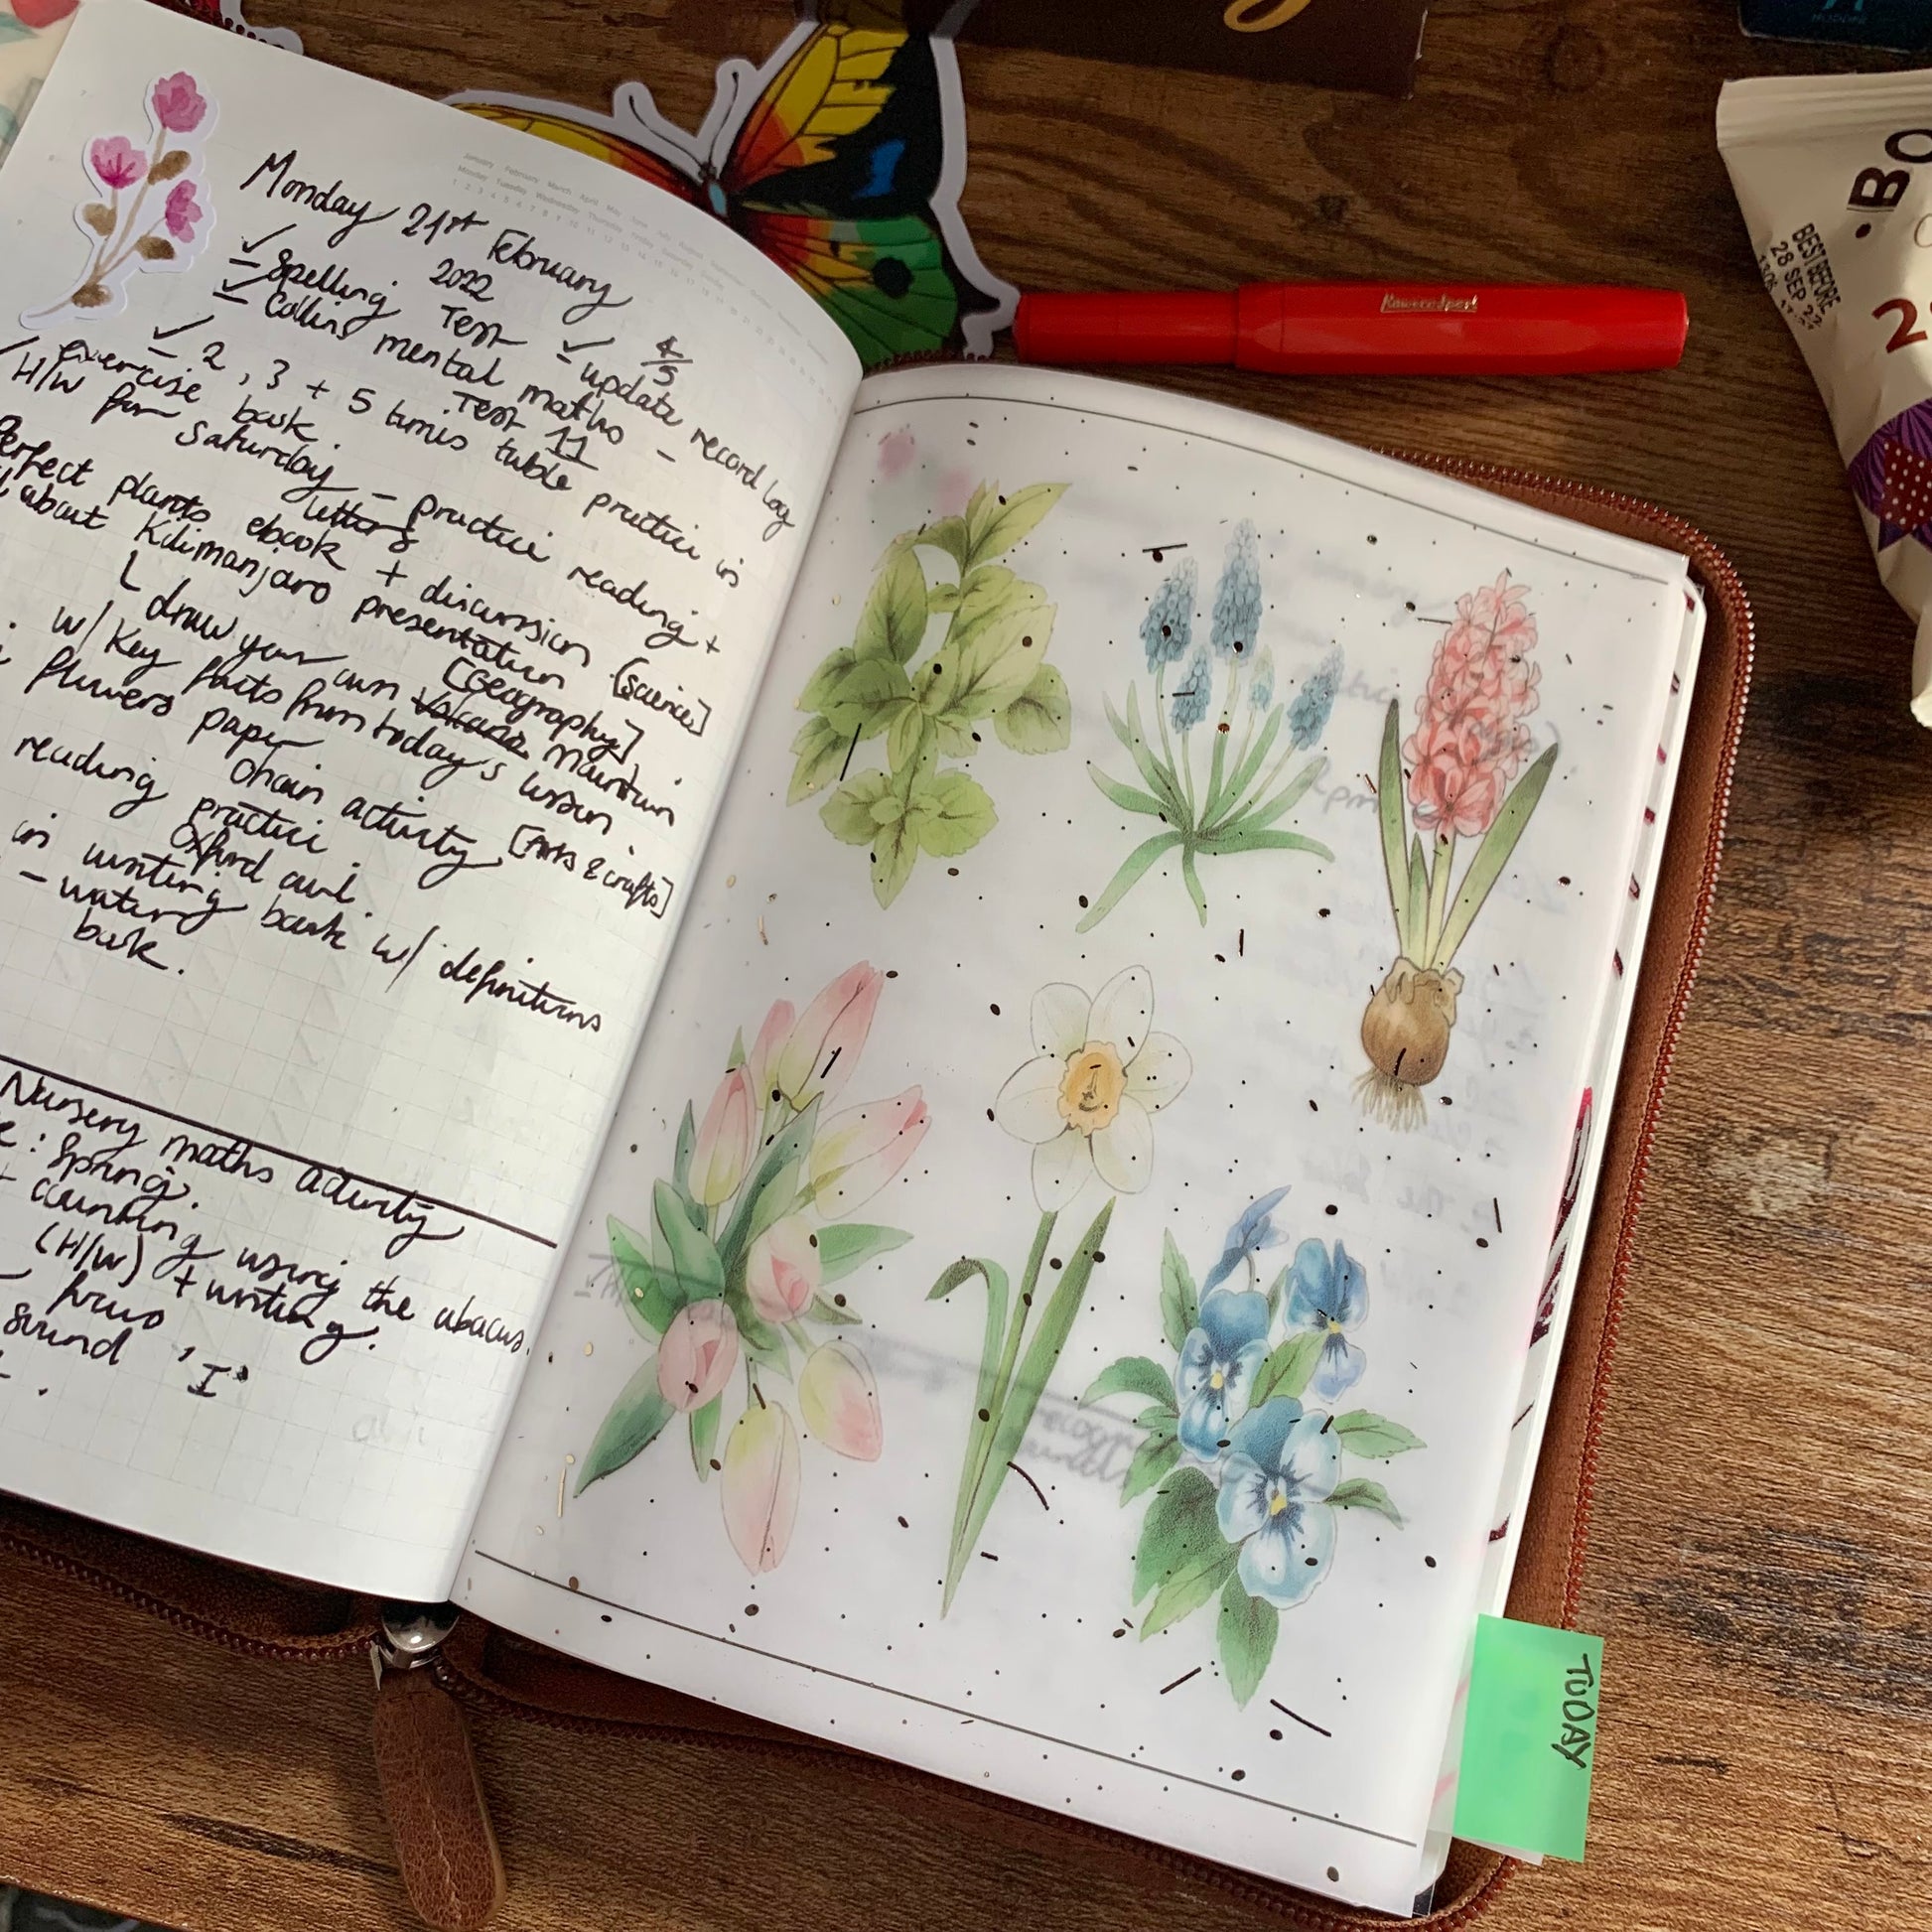 January February March April May June July August September
Monday Tuesday Wednesday Thursday Friday Saturday Sunday
1 2 3 4 5 6 7 8 9 10 11 12 13 14 15 16 17 18 19 20
Monday 21st February
2022
✓ - Spelling Test 4/5
✓ - update record log
✓ - Collins mental maths - Test 11
✓ - 2, 3 + 5 times table practice in
exercise book.
H/W for Saturday - practice reading +
letters
Perfect plants ebook + discussion [Science]
about Kilimanjaro presentation [Geography]
draw your own volcano mountain
w/ key facts from today's lesson
flowers paper chain activity [Arts & crafts]
reading practice
Oxford owl.
in writing book w/ definitions
- writing
book.
Nursery maths activity
: Spring.
+ counting using the abacus.
(H/W) + writing.
sound 'I'
Kaweco Sport
BO
BEST BEFORE
28 SEP 22
2
TODAY